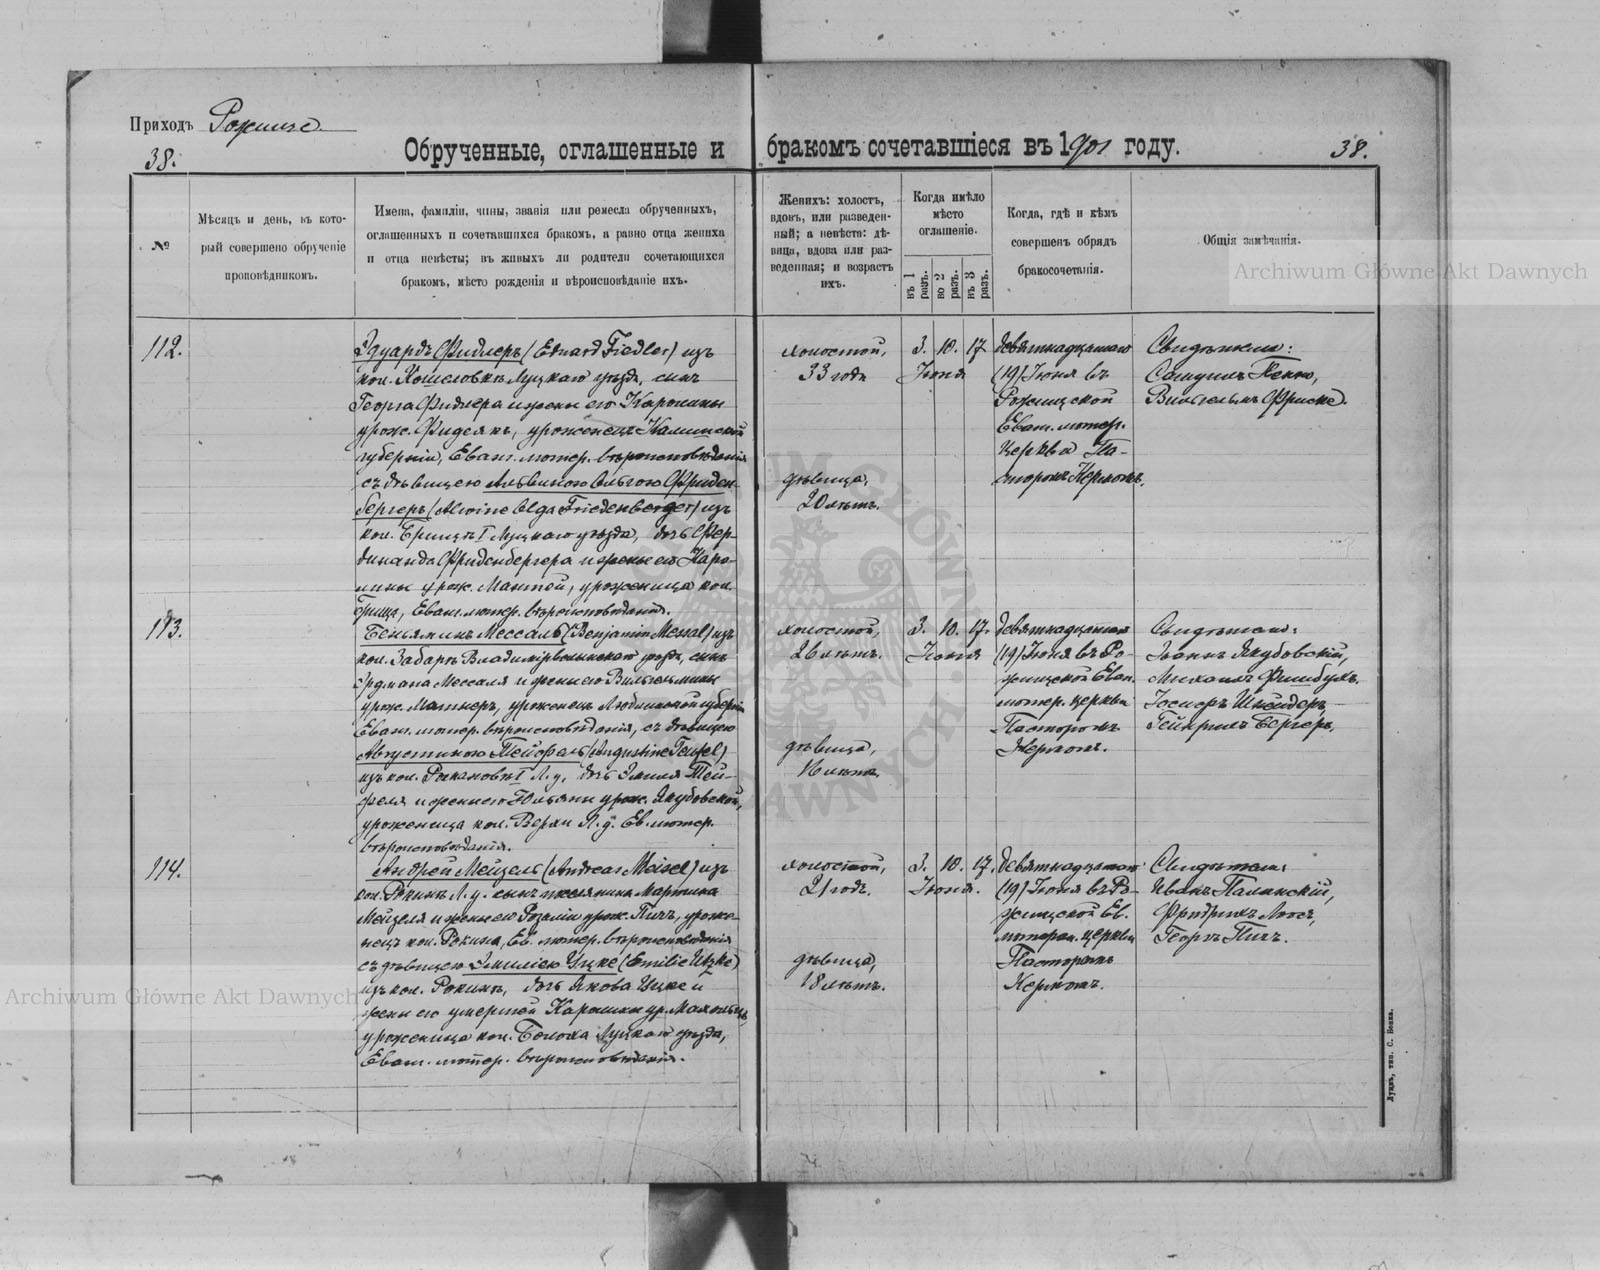 Приходъ Рожище
38.
Обрученные, оглашенные и бракомъ сочетавшіеся въ 1901 году.
38.
№
Мѣсяцъ и день, въ кото-
рый совершено обрученіе
проповѣдникомъ.
Имена, фамиліи, чины, званія или ремесла обрученныхъ,
оглашенныхъ и сочетавшихся бракомъ, а равно отца жениха
и отца невѣсты; въ живыхъ ли родители сочетающихся
бракомъ, мѣсто рожденія и вѣроисповѣданіе ихъ.
Женихъ: холостъ,
вдовъ, или разведен-
ный; а невѣста: дѣ-
вица, вдова или раз-
веденная; и возрастъ
ихъ.
Когда имѣло
мѣсто
оглашеніе.
въ 1
разъ.
во 2
разъ.
въ 3
разъ.
Когда, гдѣ и кѣмъ
совершенъ обрядъ
бракосочетанія.
Общія замѣчанія.
Archiwum Główne Akt Dawnych
112.
Эдуардъ Фидлеръ (Eduard Fiedler) изъ
кол. Кошеловкъ Луцкаго уѣзда, сынъ
Георга Фидлера и жены его Каролины
урож. уроженецъ Калишской
губерніи, Еванг. лютер. вѣроисповѣданія
съ дѣвицею Альвиною Ольгою Фриден-
бергеръ (Alwine Olga Friedenberger) изъ
кол. Луцкаго уѣзда, дочь Фер-
динанда Фриденбергера и жены его Каро-
лины урож. Мантей, уроженица кол.
Еванг. лютер. вѣроисповѣданія.
холостой,
33 года
дѣвица,
20 лѣтъ.
3. 10. 17
Іюня
девятнадцатаго
(19) Іюня въ
Рожищской
Еванг. лютер.
церкви Па-
сторомъ Керномъ.
Свидѣтели:
Самуилъ
Вильгельмъ Фриске.
113.
Беньяминъ Мессаль (Benjamin Messal) изъ
кол. Забара Владимірволынскаго уѣзда, сынъ
Эрдмана Мессаля и жены его Вильгельмины
урож. уроженецъ Люблинской губерніи
Еванг. лютер. вѣроисповѣданія, съ дѣвицею
Августиною Тейфель (Augustine Teufel)
изъ кол. Рокановкъ I Л. у. дочь Эмиля Тей-
феля и жены его Юльяны урож. Якубовской,
уроженица кол. Верхи Л. у. Ев. лютер.
вѣроисповѣданія.
холостой,
26 лѣтъ.
дѣвица,
3. 10. 17.
Іюня
девятнадцатаго
(19) Іюня въ Ро-
жищской Еван.
лютер. церкви
Пасторомъ
Керномъ.
Свидѣтели:
Іоганъ Якубовскій,
Михаилъ
Шнейдеръ,
Гейнрихъ Бергеръ.
114.
Андрей Мейзель (Andreas Meisel) изъ
кол. Рокинъ Л. у. сынъ поселянина Мартина
Мейзеля и жены его Розаліи урож. Пичъ, уроже-
нецъ кол. Рокина, Ев. лютер. вѣроисповѣданія
съ дѣвицею Эмиліею Уцке (Emilie Utzke)
изъ кол. Рокинъ, дочь Якова Уцке и
жены его умершей Каролины ур.
уроженица кол. Луцкаго уѣзда,
Еванг. лютер. вѣроисповѣданія.
холостой,
21 годъ.
дѣвица,
18 лѣтъ.
3. 10. 17.
Іюня.
девятнадцатаго
(19) Іюня въ Ро-
жищской Ев.
лютеран. церкви
Пасторомъ
Керномъ.
Свидѣтели:
Иванъ Палинскій,
Фридрихъ
Георгъ Пичъ.
Archiwum Główne Akt Dawnych
Луцкъ, тип. С. Бонка.